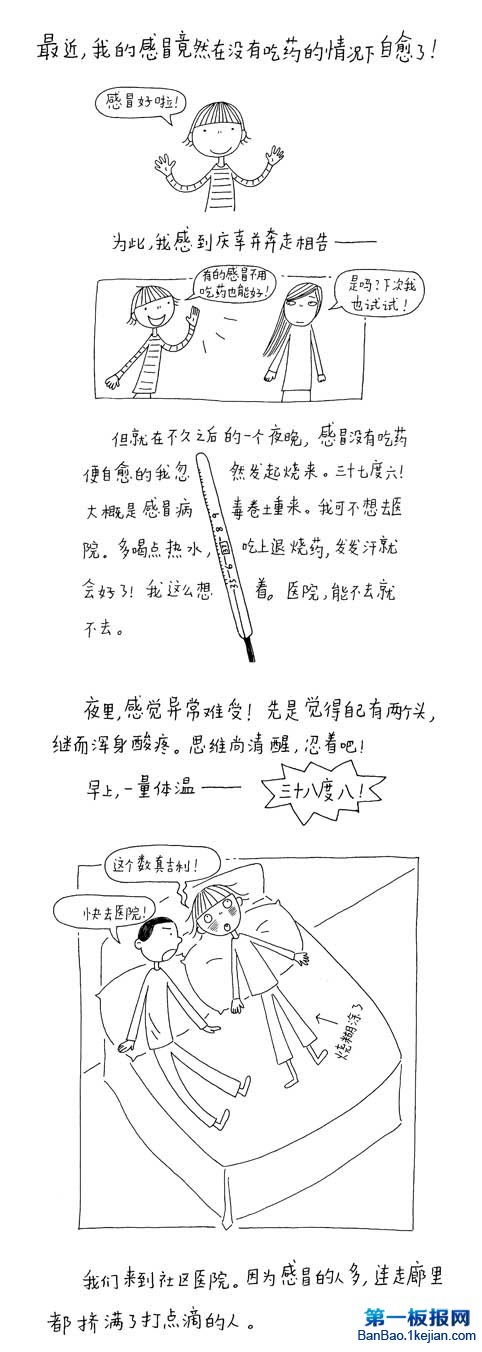 最近,我的感冒竟然在没有吃药的情况下自愈了!
感冒好啦!
为此,我感到庆幸并奔走相告——
有的感冒不用
吃药也能好!
是吗?下次我
也试试!
但就在不久之后的一个夜晚,感冒没有吃药
便自愈的我忽然发起烧来。三十七度六!
大概是感冒病毒卷土重来。我可不想去医
院。多喝点热水,吃上退烧药,发发汗就
会好了!我这么想着。医院,能不去就
不去。
夜里,感觉异常难受!先是觉得自己有两个头,
继而浑身酸疼。思维尚清醒,忍着吧!
早上,一量体温——三十八度八!
这个数真吉利!
快去医院!
烧糊涂了
我们来到社区医院。因为感冒的人多,连走廊里
都挤满了打点滴的人。
第一板报网
BanBao.1kejian.com